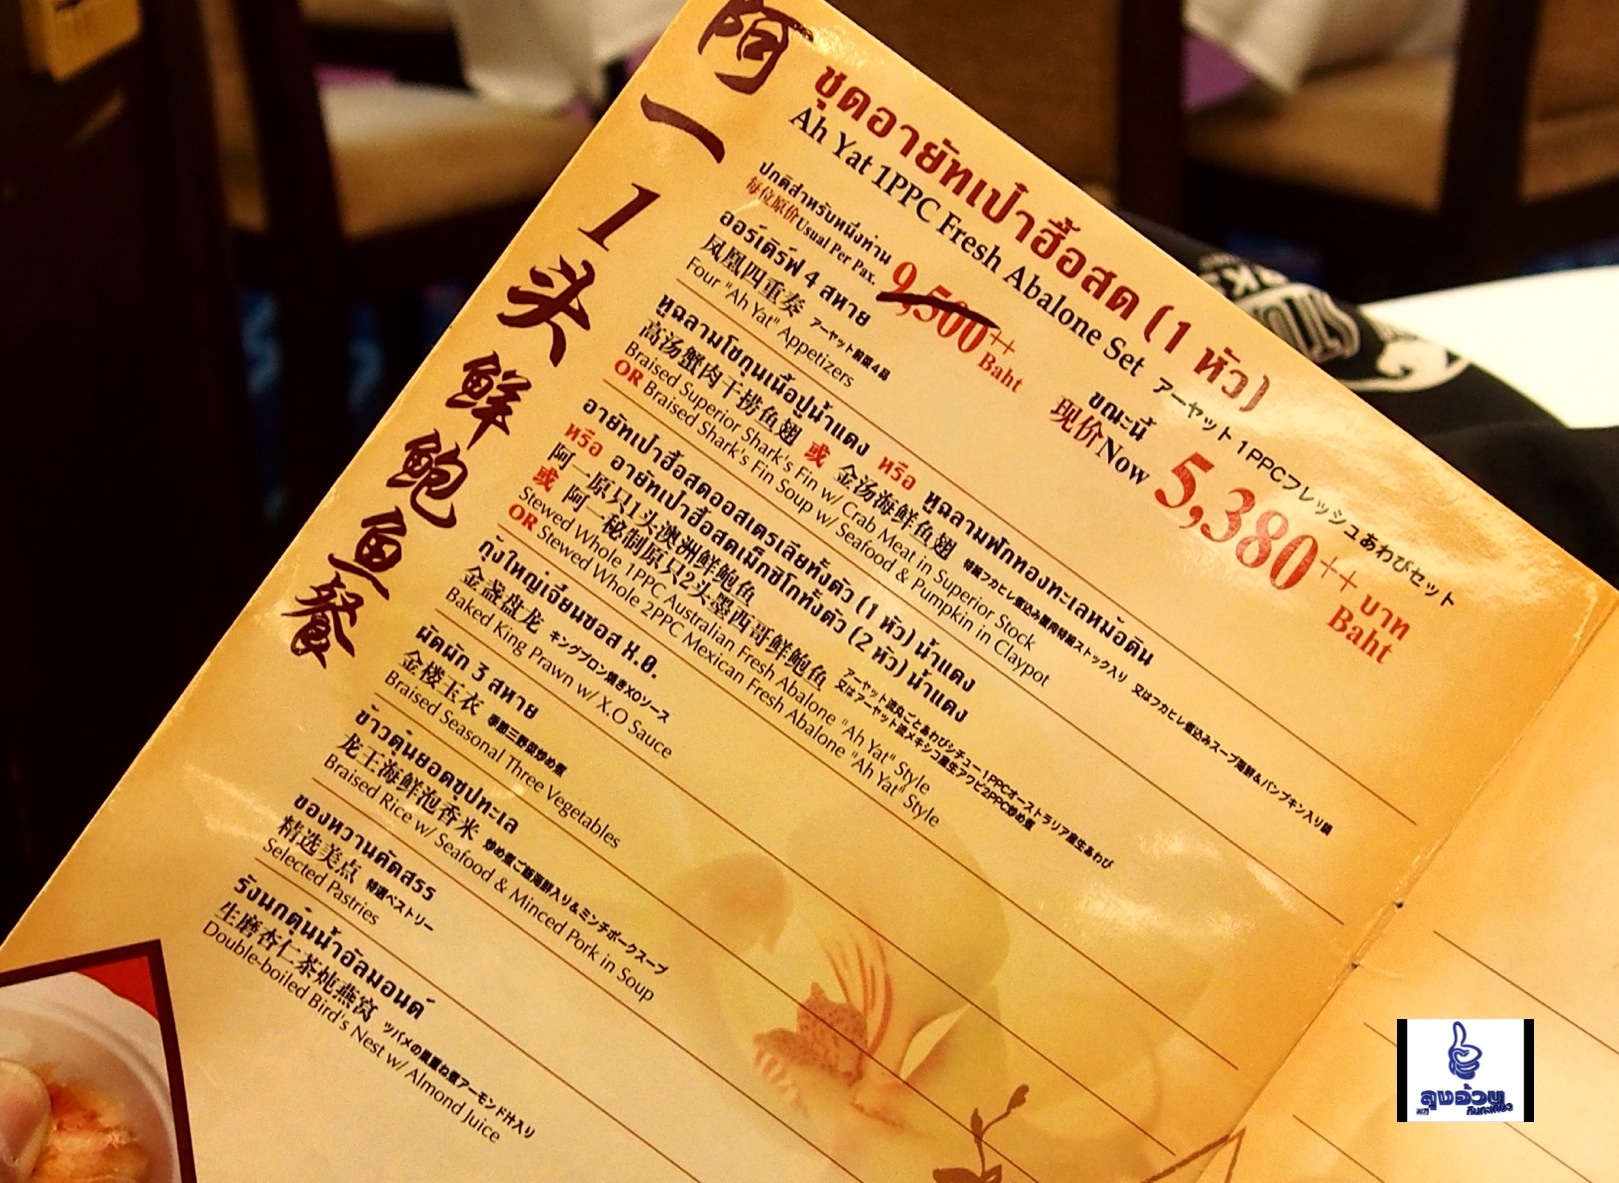 阿一1头鲜鲍鱼餐
ชุดอายัทเป๋าฮื้อสด (1 หัว)
Ah Yat 1PPC Fresh Abalone Set アーヤット1PPCフレッシュあわびセット
ปกติสำหรับหนึ่งท่าน
每位原价 Usual Per Pax. 9,500++ Baht
ขณะนี้
现价 Now 5,380++ บาท Baht
ออร์เดิร์ฟ 4 สหาย
凤凰四重奏 アーヤット前菜4品
Four "Ah Yat" Appetizers
หูฉลามโชกุนเนื้อปูน้ำแดง หรือ หูฉลามฟักทองทะเลหม้อดิน
高汤蟹肉干捞鱼翅 或 金汤海鲜鱼翅 特級フカヒレ煮込み蟹肉特級ストック入り 又はフカヒレ煮込みスープ海鮮&パンプキン入り鍋
Braised Superior Shark's Fin w/ Crab Meat in Superior Stock
OR Braised Shark's Fin Soup w/ Seafood & Pumpkin in Claypot
อายัทเป๋าฮื้อสดออสเตรเลียทั้งตัว (1 หัว) น้ำแดง
หรือ อายัทเป๋าฮื้อสดเม็กซิโกทั้งตัว (2 หัว) น้ำแดง
阿一原只1头澳洲鲜鲍鱼 アーヤット流丸ごとあわびシチュー1PPCオーストラリア産生あわび
或 阿一秘制原只2头墨西哥鲜鲍鱼 又はアーヤット流メキシコ産生アワビ2PPC炒め煮
Stewed Whole 1PPC Australian Fresh Abalone "Ah Yat" Style
OR Stewed Whole 2PPC Mexican Fresh Abalone "Ah Yat" Style
กุ้งใหญ่เจี๋ยนซอส X.O.
金盏盘龙 キングプロン焼きXOソース
Baked King Prawn w/ X.O Sauce
ผัดผัก 3 สหาย
金楼玉衣 季節三野菜炒め煮
Braised Seasonal Three Vegetables
ข้าวตุ๋นยอดซุปทะเล
龙王海鲜泡香米 炒め煮ご飯海鮮入り&ミンチポークスープ
Braised Rice w/ Seafood & Minced Pork in Soup
ของหวานคัดสรร
精选美点 特選ペストリー
Selected Pastries
รังนกตุ๋นน้ำอัลมอนด์
生磨杏仁茶炖燕窝 ツバメの巣重ね煮アーモンド汁入り
Double-boiled Bird's Nest w/ Almond Juice
ลุงอ้วน
กินกะเที่ยว